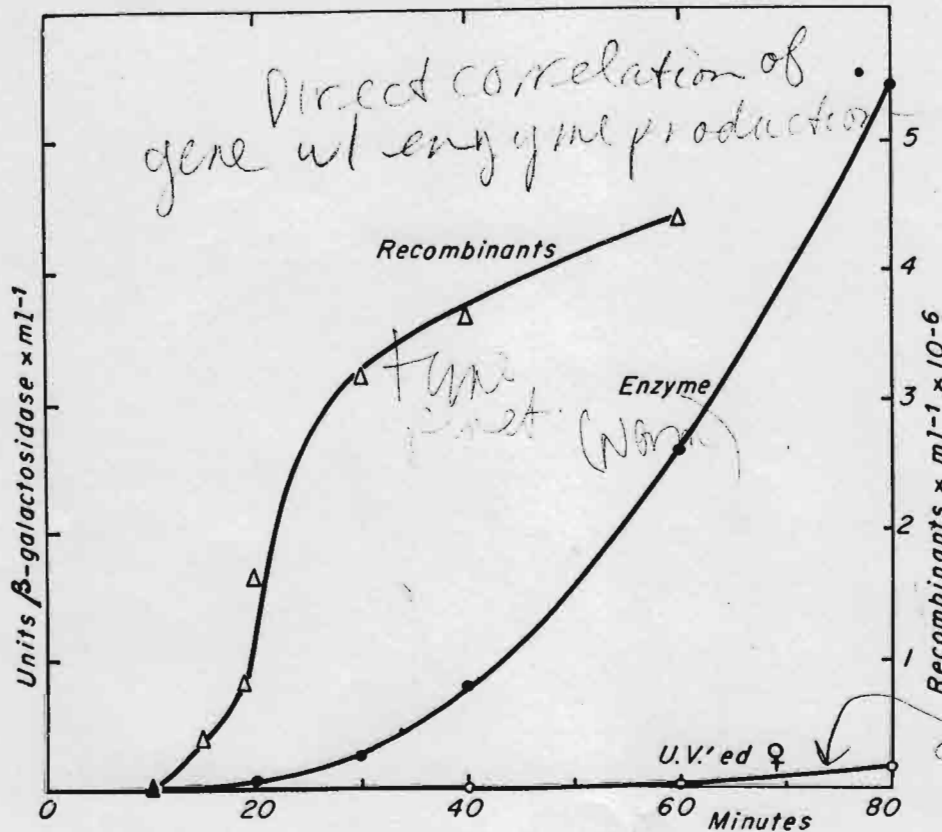 Direct correlation of
gene w/ enzyme production
Recombinants
Enzyme
U.V.'ed ♀
Units β-galactosidase × ml⁻¹
5
4
3
2
1
Recombinants × ml⁻¹ × 10⁻⁶
0 20 40 60 80
Minutes